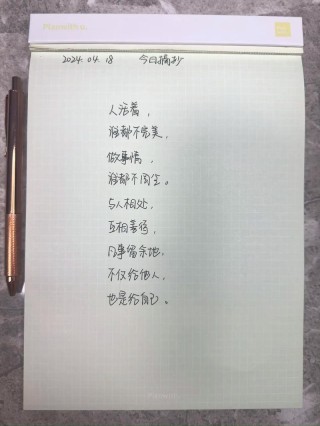 2024.04.18 今日摘抄
人活着，
谁都不完美，
做事情，
谁都不周全。
与人相处，
互相善待，
凡事留余地，
不仅给他人，
也是给自己。